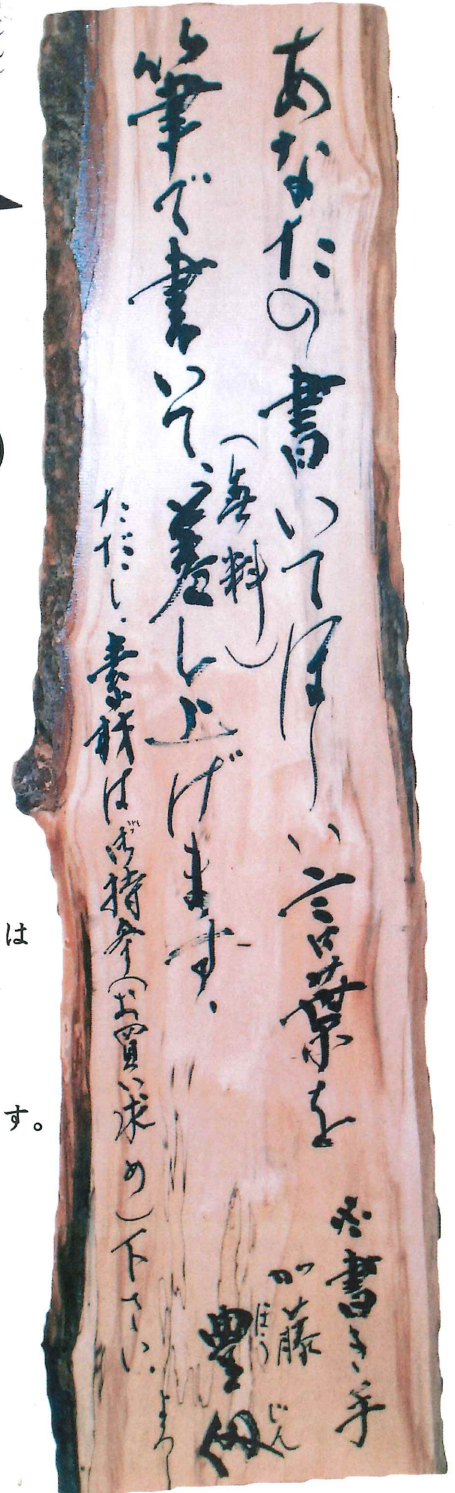 あなたの書いてほしい言葉を
(無料)
筆で書いて、差し上げます。
ただし、素材は御持参(お買い求め)下さい。
書き手
加藤
豊仭
ほう
じん
は
す。